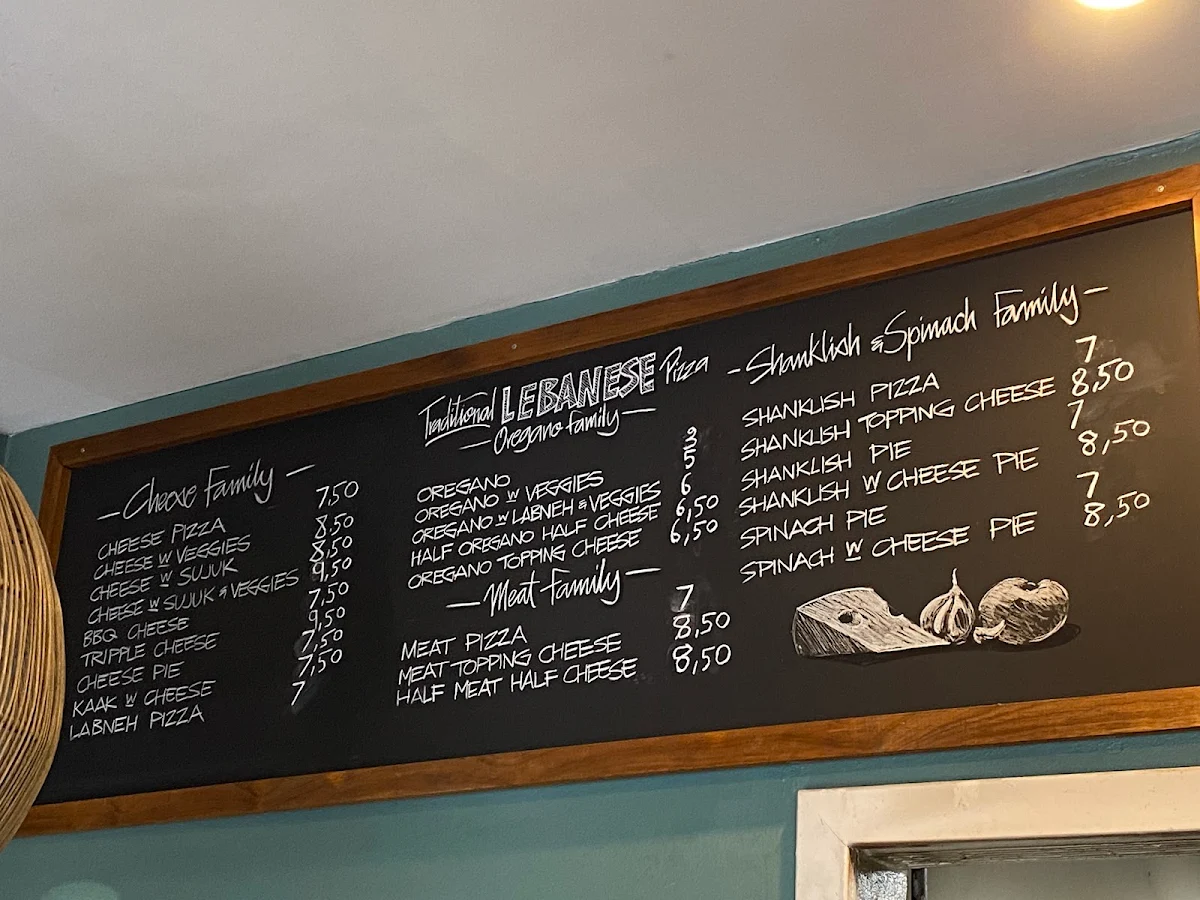 Traditional LEBANESE Pizza
- Cheese Family -
CHEESE PIZZA 7,50
CHEESE W VEGGIES 8,50
CHEESE W SUJUK 8,50
CHEESE W SUJUK & VEGGIES 9,50
BBQ CHEESE 7,50
TRIPPLE CHEESE 9,50
CHEESE PIE 7,50
KAAK W CHEESE 7,50
LABNEH PIZZA 7
- Oregano Family -
OREGANO 3
OREGANO W VEGGIES 5
OREGANO W LABNEH & VEGGIES 6
HALF OREGANO HALF CHEESE 6,50
OREGANO TOPPING CHEESE 6,50
- Meat Family -
MEAT PIZZA 7
MEAT TOPPING CHEESE 8,50
HALF MEAT HALF CHEESE 8,50
- Shanklish & Spinach Family -
SHANKLISH PIZZA 7
SHANKLISH TOPPING CHEESE 8,50
SHANKLISH PIE 7
SHANKLISH W CHEESE PIE 8,50
SPINACH PIE 7
SPINACH W CHEESE PIE 8,50